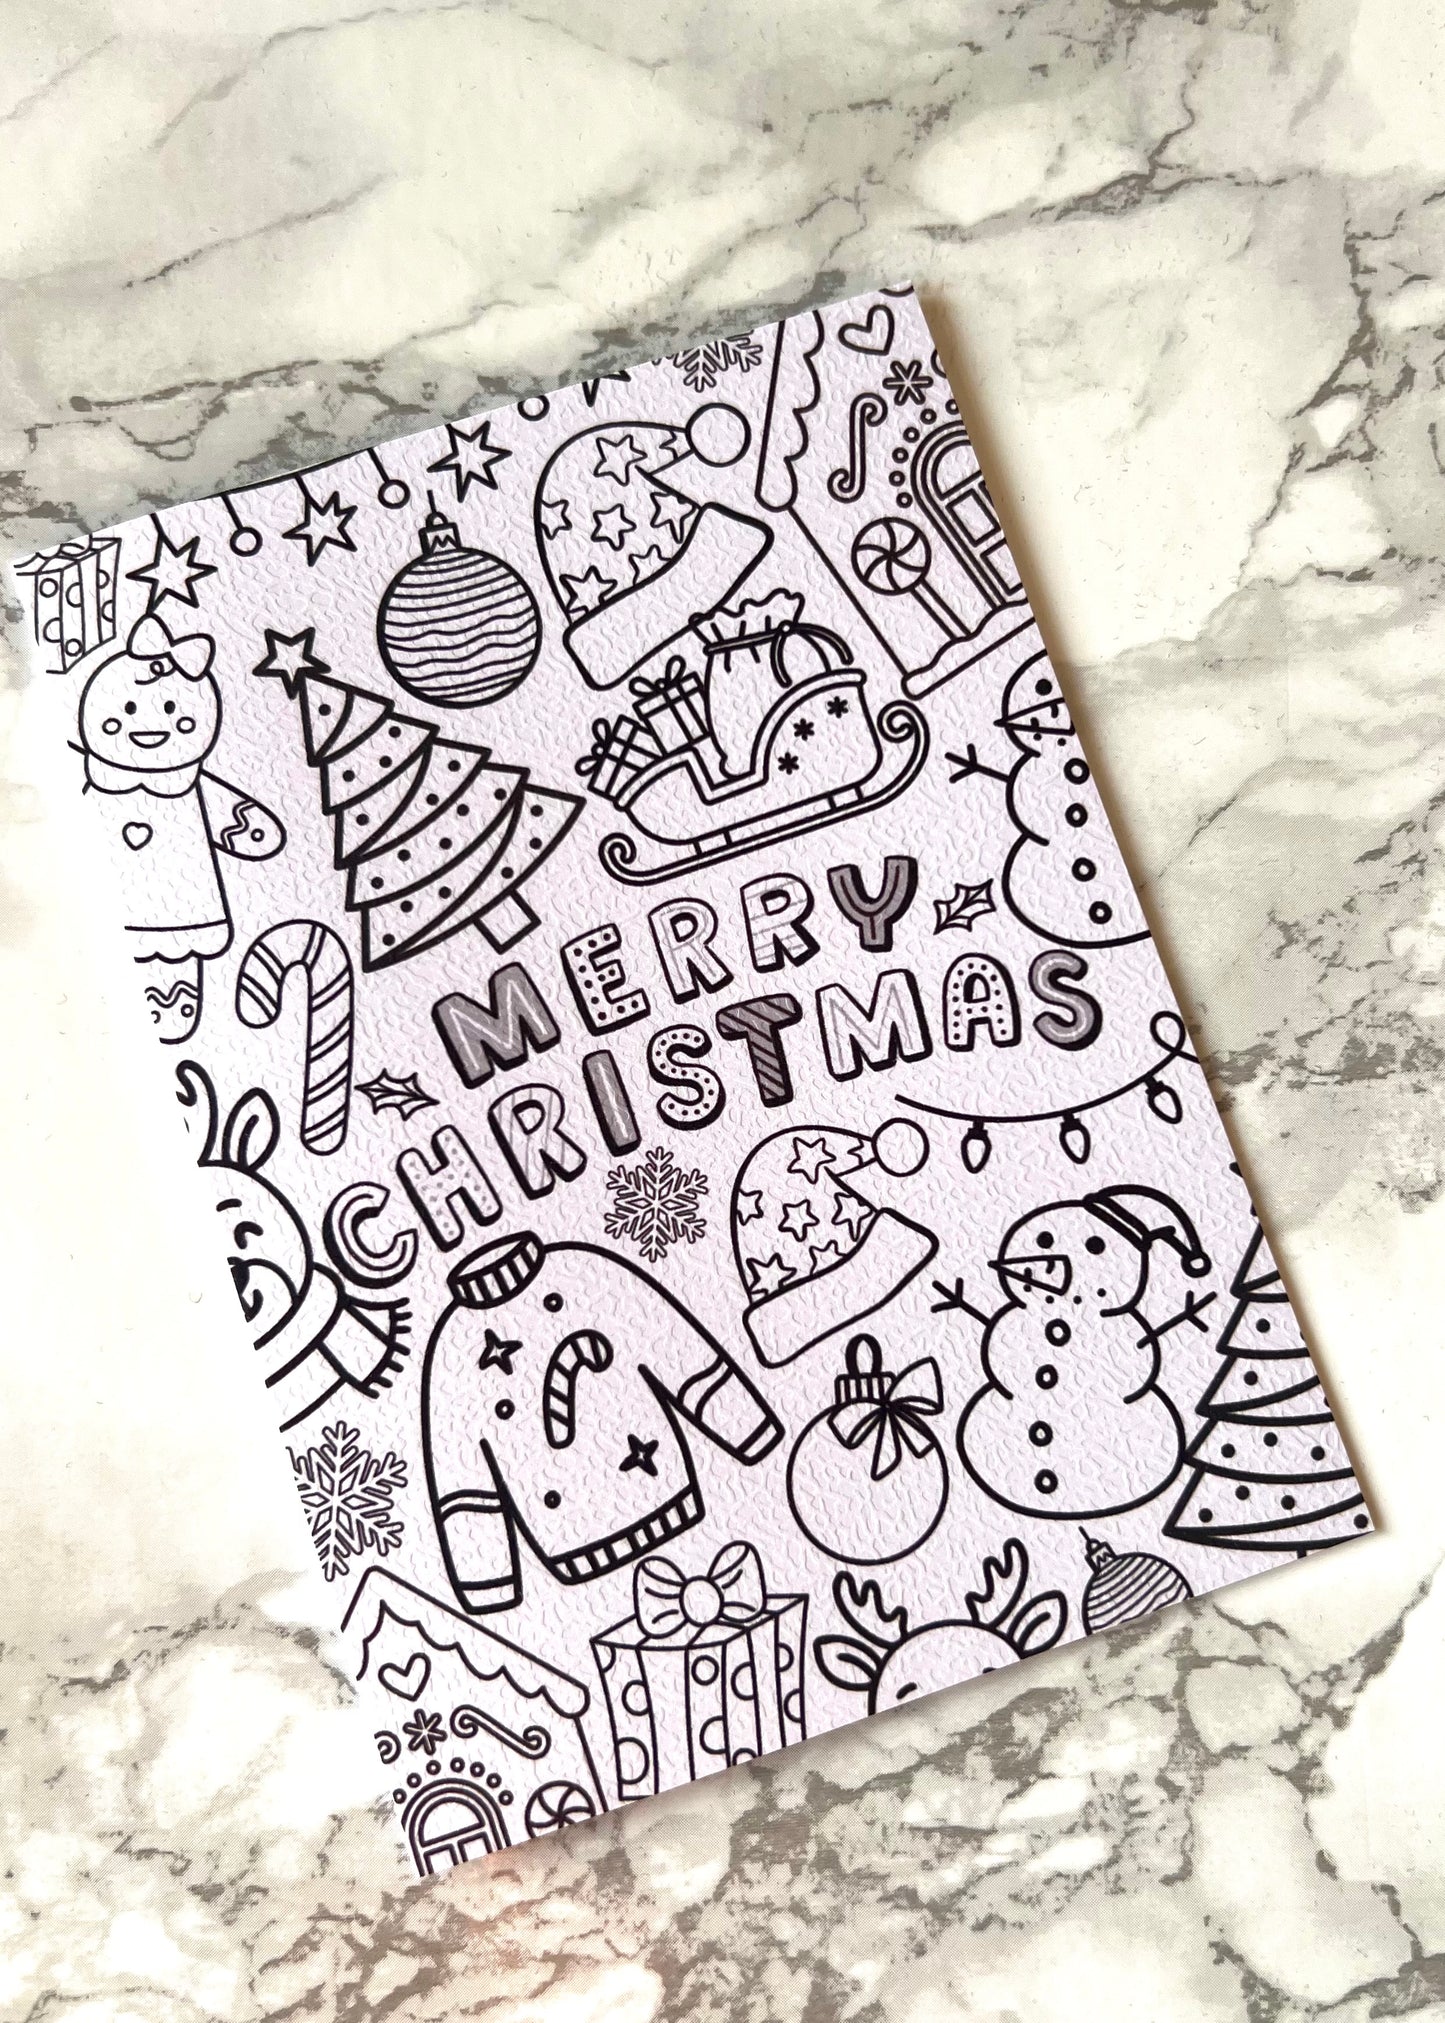 MERRY
CHRISTMAS